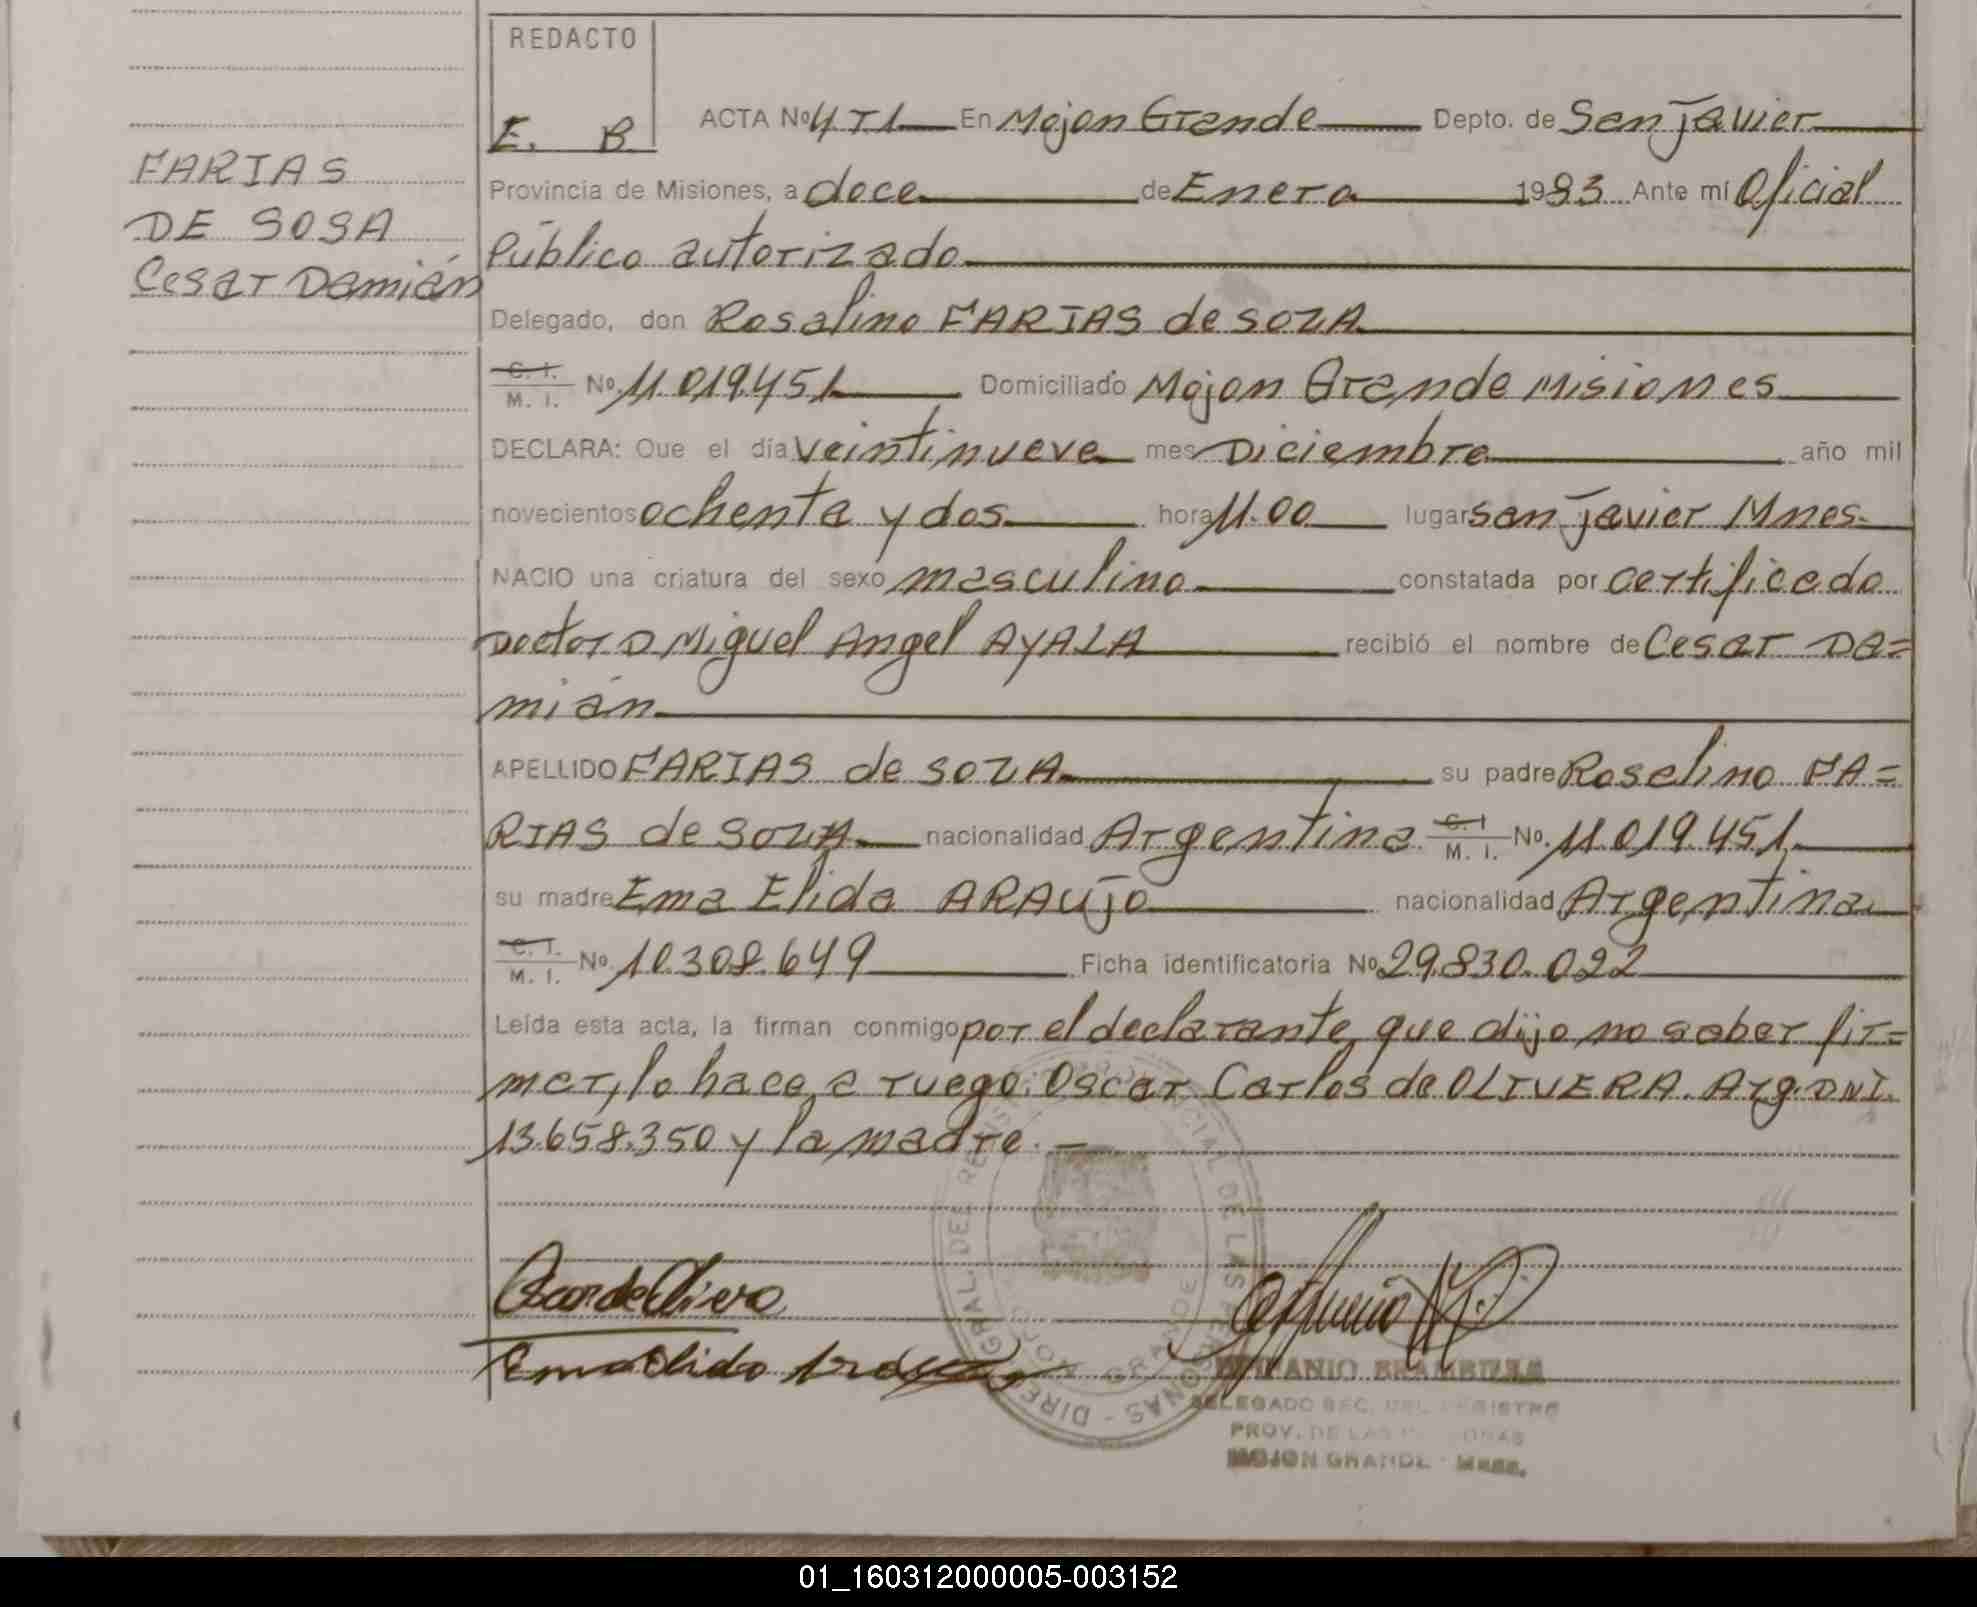 REDACTO
E. B.
FARIAS
DE SOSA
Cesar Damián
ACTA Nº 4 T1 En Mojon Grande Depto. de San Javier
Provincia de Misiones, a doce de Enero 1983 Ante mí Oficial
Público autorizado
Delegado, don Rosalino FARIAS de SOZA
C. I. M. I. No. 11.019.451 Domiciliado Mojon Grande Misiones
DECLARA: Que el día veintinueve mes Diciembre año mil
novecientos ochenta y dos hora 11.00 lugar San Javier Mnes.
NACIO una criatura del sexo masculino constatada por certificado
Doctor D Miguel Angel AYALA recibió el nombre de Cesar Da=
mián
APELLIDO FARIAS de SOZA su padre Rosalino FA=
RIAS de SOZA nacionalidad Argentina C. I M. I. No. 11.019.451
su madre Ema Elida ARAUJO nacionalidad Argentina
C. I. M. I. No. 10.308.649 Ficha identificatoria Nº 29.830.022
Leída esta acta, la firman conmigo por el declarante que dijo no saber fir=
mar, lo hace a ruego Oscar Carlos de OLIVERA. Arg. DNI.
13.658.350 y la madre. —
Oscar de Olivera
Ema Elida
BRAMBILLA
DELEGADO SEC. DEL REGISTRO
PROV. DE LAS PERSONAS
MOJON GRANDE - Mnes.
DIREC. GRAL. DEL REGISTRO PROVINCIAL DE LAS PERSONAS -
MOJON GRANDE
01_160312000005-003152